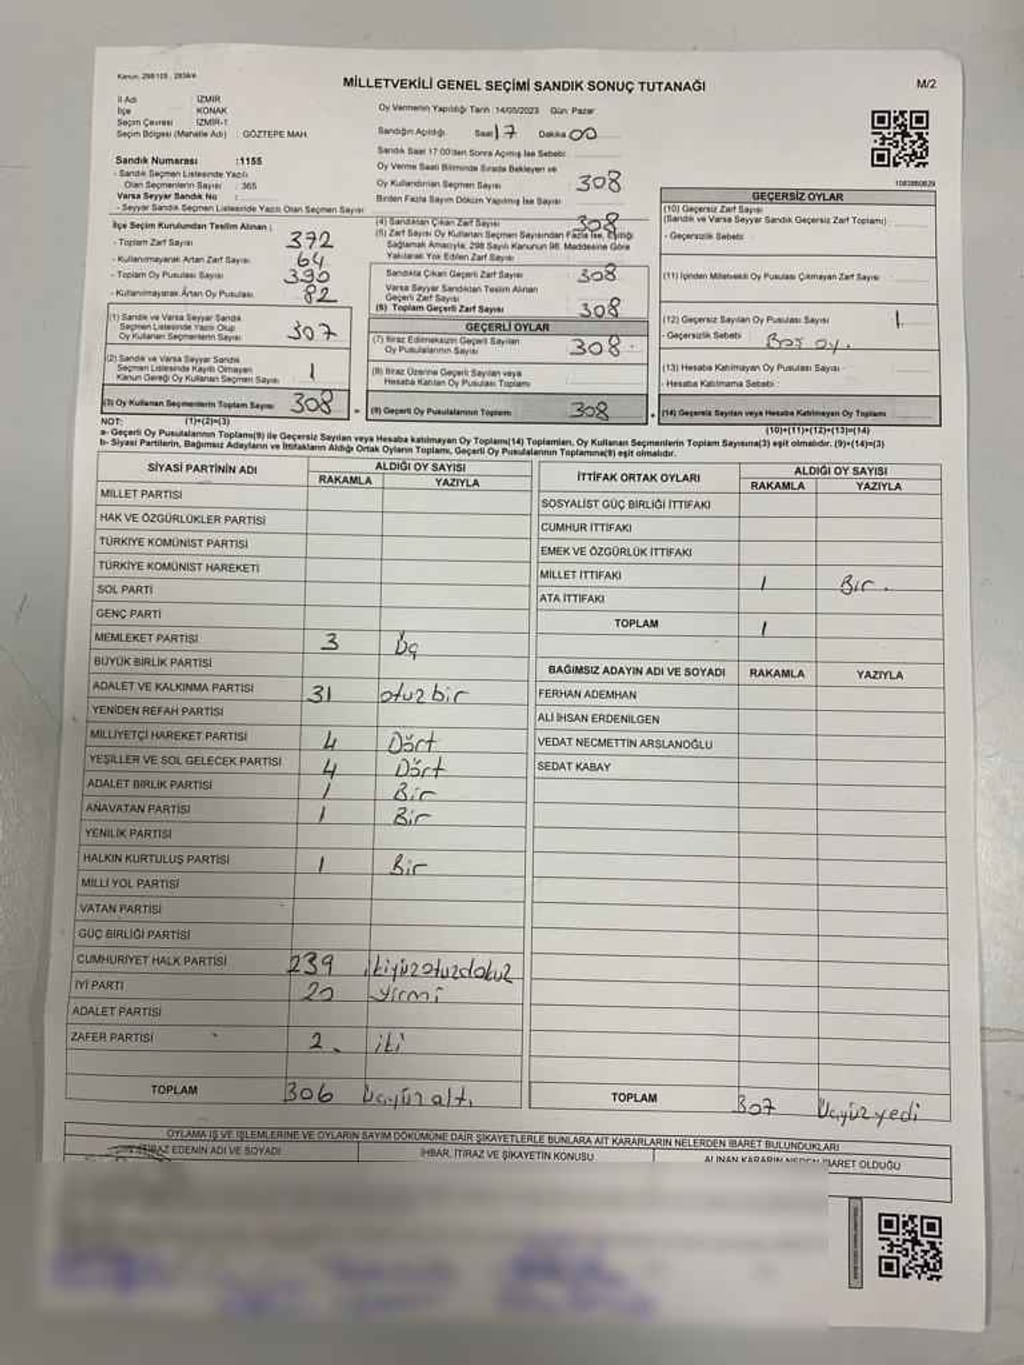 Kanun: 298/105, 2839/e
MİLLETVEKİLİ GENEL SEÇİMİ SANDIK SONUÇ TUTANAĞI
M/2
İl Adı İZMİR
İlçe KONAK
Seçim Çevresi İZMİR-1
Seçim Bölgesi (Mahalle Adı) : GÖZTEPE MAH.
Sandık Numarası :1155
- Sandık Seçmen Listesinde Yazılı
Olan Seçmenlerin Sayısı : 365
Varsa Seyyar Sandık No :
- Seyyar Sandık Seçmen Listesinde Yazılı Olan Seçmen Sayısı
Oy Vermenin Yapıldığı Tarih :14/05/2023 Gün: Pazar
Sandığın Açıldığı Saat 17 Dakika 00
Sandık Saat 17:00'den Sonra Açılmış İse Sebebi:
Oy Verme Saati Bitiminde Sırada Bekleyen ve
Oy Kullandırılan Seçmen Sayısı 308
Birden Fazla Sayım Döküm Yapılmış İse Sayısı
1083880829
İlçe Seçim Kurulundan Teslim Alınan ;
- Toplam Zarf Sayısı 372
- Kullanılmayarak Artan Zarf Sayısı 64
- Toplam Oy Pusulası Sayısı 390
- Kullanılmayarak Artan Oy Pusulası 82
(1) Sandık ve Varsa Seyyar Sandık
Seçmen Listesinde Yazılı Olup
Oy Kullanan Seçmenlerin Sayısı 307
(2) Sandık ve Varsa Seyyar Sandık
Seçmen Listesinde Kayıtlı Olmayan
Kanun Gereği Oy Kullanan Seçmen Sayısı 1
(3) Oy Kullanan Seçmenlerin Toplam Sayısı 308
(4) Sandıktan Çıkan Zarf Sayısı 308
(5) Zarf Sayısı Oy Kullanan Seçmen Sayısından Fazla İse, Eşitliği
Sağlamak Amacıyla, 298 Sayılı Kanunun 98. Maddesine Göre
Yakılarak Yok Edilen Zarf Sayısı
Sandıkta Çıkan Geçerli Zarf Sayısı 308
Varsa Seyyar Sandıktan Teslim Alınan
Geçerli Zarf Sayısı
(6) Toplam Geçerli Zarf Sayısı 308
GEÇERLİ OYLAR
(7) İtiraz Edilmeksizin Geçerli Sayılan
Oy Pusulalarının Sayısı 308
(8) İtiraz Üzerine Geçerli Sayılan veya
Hesaba Katılan Oy Pusulası Toplamı
= (9) Geçerli Oy Pusulalarının Toplamı 308
GEÇERSİZ OYLAR
(10) Geçersiz Zarf Sayısı
(Sandık ve Varsa Seyyar Sandık Geçersiz Zarf Toplamı)
- Geçersizlik Sebebi
(11) İçinden Milletvekili Oy Pusulası Çıkmayan Zarf Sayısı
(12) Geçersiz Sayılan Oy Pusulası Sayısı 1
- Geçersizlik Sebebi : Boş oy.
(13) Hesaba Katılmayan Oy Pusulası Sayısı
- Hesaba Katılmama Sebebi :
+ (14) Geçersiz Sayılan veya Hesaba Katılmayan Oy Toplamı
NOT: (1)+(2)=(3)
(10)+(11)+(12)+(13)=(14)
a- Geçerli Oy Pusulalarının Toplamı(9) ile Geçersiz Sayılan veya Hesaba katılmayan Oy Toplamı(14) Toplamları, Oy Kullanan Seçmenlerin Toplam Sayısına(3) eşit olmalıdır. (9)+(14)=(3)
b- Siyasi Partilerin, Bağımsız Adayların ve İttifakların Aldığı Ortak Oyların Toplamı, Geçerli Oy Pusulalarının Toplamına(9) eşit olmalıdır.
SİYASİ PARTİNİN ADI
ALDIĞI OY SAYISI
RAKAMLA YAZIYLA
MİLLET PARTİSİ
HAK VE ÖZGÜRLÜKLER PARTİSİ
TÜRKİYE KOMÜNİST PARTİSİ
TÜRKİYE KOMÜNİST HAREKETİ
SOL PARTİ
GENÇ PARTİ
MEMLEKET PARTİSİ 3 Üç
BÜYÜK BİRLİK PARTİSİ
ADALET VE KALKINMA PARTİSİ 31 otuzbir
YENİDEN REFAH PARTİSİ
MİLLİYETÇİ HAREKET PARTİSİ 4 Dört
YEŞİLLER VE SOL GELECEK PARTİSİ 4 Dört
ADALET BİRLİK PARTİSİ 1 Bir
ANAVATAN PARTİSİ 1 Bir
YENİLİK PARTİSİ
HALKIN KURTULUŞ PARTİSİ 1 Bir
MİLLİ YOL PARTİSİ
VATAN PARTİSİ
GÜÇ BİRLİĞİ PARTİSİ
CUMHURİYET HALK PARTİSİ 239 ikiyüzotuzdokuz
İYİ PARTİ 20 yirmi
ADALET PARTİSİ
ZAFER PARTİSİ 2 iki
TOPLAM 306 Üçyüzaltı
İTTİFAK ORTAK OYLARI
ALDIĞI OY SAYISI
RAKAMLA YAZIYLA
SOSYALİST GÜÇ BİRLİĞİ İTTİFAKI
CUMHUR İTTİFAKI
EMEK VE ÖZGÜRLÜK İTTİFAKI
MİLLET İTTİFAKI 1 Bir.
ATA İTTİFAKI
TOPLAM 1
BAĞIMSIZ ADAYIN ADI VE SOYADI RAKAMLA YAZIYLA
FERHAN ADEMHAN
ALİ İHSAN ERDENİLGEN
VEDAT NECMETTİN ARSLANOĞLU
SEDAT KABAY
TOPLAM 307 Üçyüzyedi
OYLAMA İŞ VE İŞLEMLERİNE VE OYLARIN SAYIM DÖKÜMÜNE DAİR ŞİKAYETLERLE BUNLARA AİT KARARLARIN NELERDEN İBARET BULUNDUKLARI
İTİRAZ EDENİN ADI VE SOYADI
İHBAR, İTİRAZ VE ŞİKAYETİN KONUSU
ALINAN KARARIN NEDEN İBARET OLDUĞU